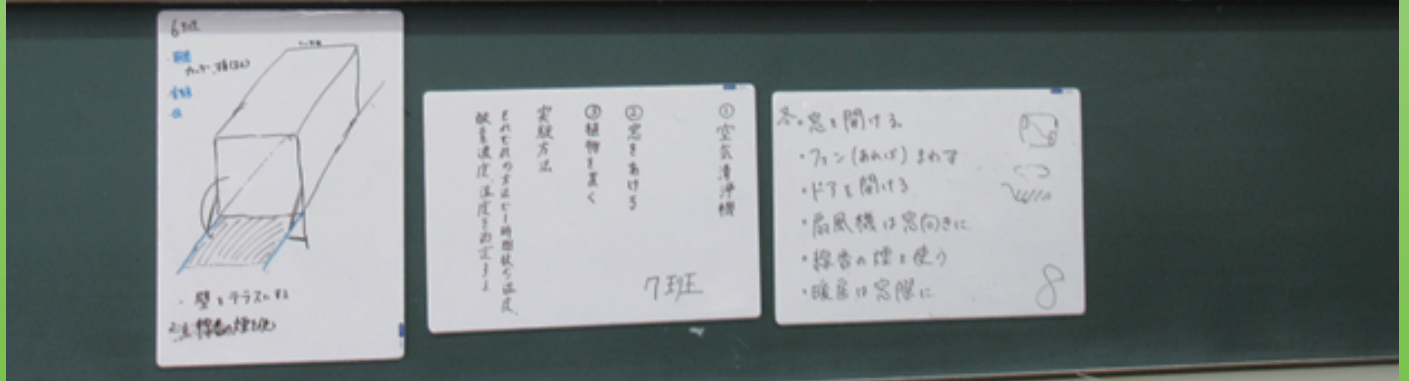 6班
・壁をテラスにする
線香の煙を使
①空気清浄機
②窓をあける
③植物を置く
実験方法
それぞれの方法で1時間後の温度、
酸素濃度、湿度を測定する
7班
冬。窓を開ける。
・ファン(あれば)まわす
・ドアを開ける
・扇風機は窓向きに
・線香の煙を使う
・暖房は窓際に
8